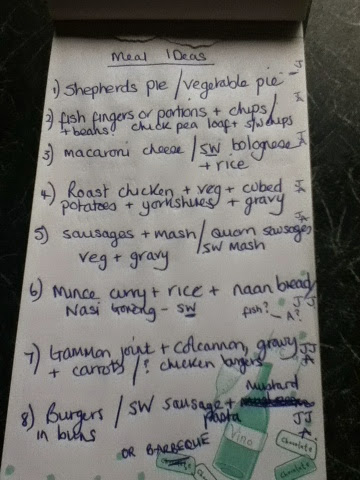 Meal Ideas
1) Shepherds pie / vegetable pie J
2) fish fingers or portions + chips / J A
+ beans chick pea loaf + SW chips
3) macaroni cheese / SW bolognese J A
+ rice
4) Roast chicken + veg + cubed J A
potatoes + yorkshires + gravy
5) Sausages + mash / Quorn sausages J A
veg + gravy / SW mash
6) Mince curry + rice + naan bread / J J
Nasi Goreng - SW fish? - A?
7) Gammon joint + colcannon, gravy J J A
+ carrots / ? chicken burgers
8) Burgers / SW sausage + mustard J J A
in buns pasta
OR BARBEQUE
Vino
chocolate
chocolate
chocolate